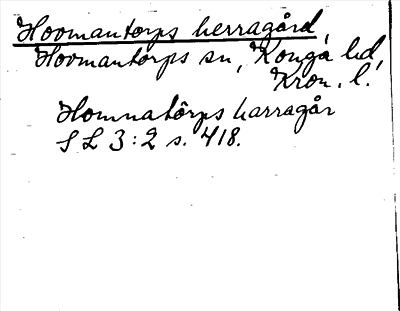 Hovmantorps herragård,
Hovmantorps sn, Konga hd,
Kron. l.
Homnatôrps harragår
S L 3:2 s. 418.